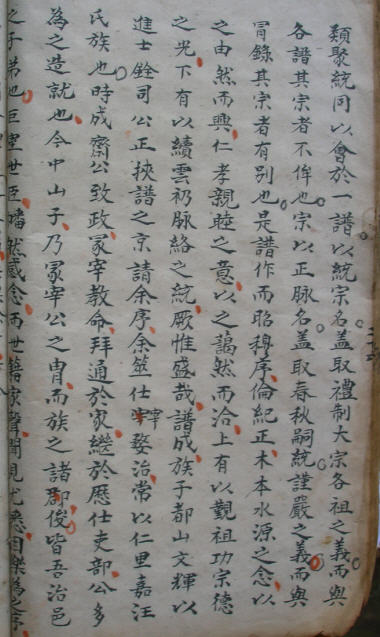 類聚統同以會於一譜以統宗名蓋取禮制大宗各祖之義而與
各譜其宗者不侔也宗以正脉名蓋取春秋嗣統謹嚴之義而與
冐錄其宗者有别也是譜作而昭穆序倫紀正木本水源之念以
之由然而興仁孝親睦之意以之藹然而洽上有以觀祖功宗德
之光下有以續雲礽脉絡之統厥惟盛哉譜成族子都山文輝以
進士銓司公正挾譜之京請余序余筮仕宰婺治常以仁里嘉汪
氏族也時成齋公致政冢宰教命拜通於家繼於歷仕吏部公多
為之造就也今中山子乃冢宰公之胄而族之諸郡俊皆吾治邑
之子弟也巨室世臣幡然感念而世籍家聲聞見尤悉因樂為之序